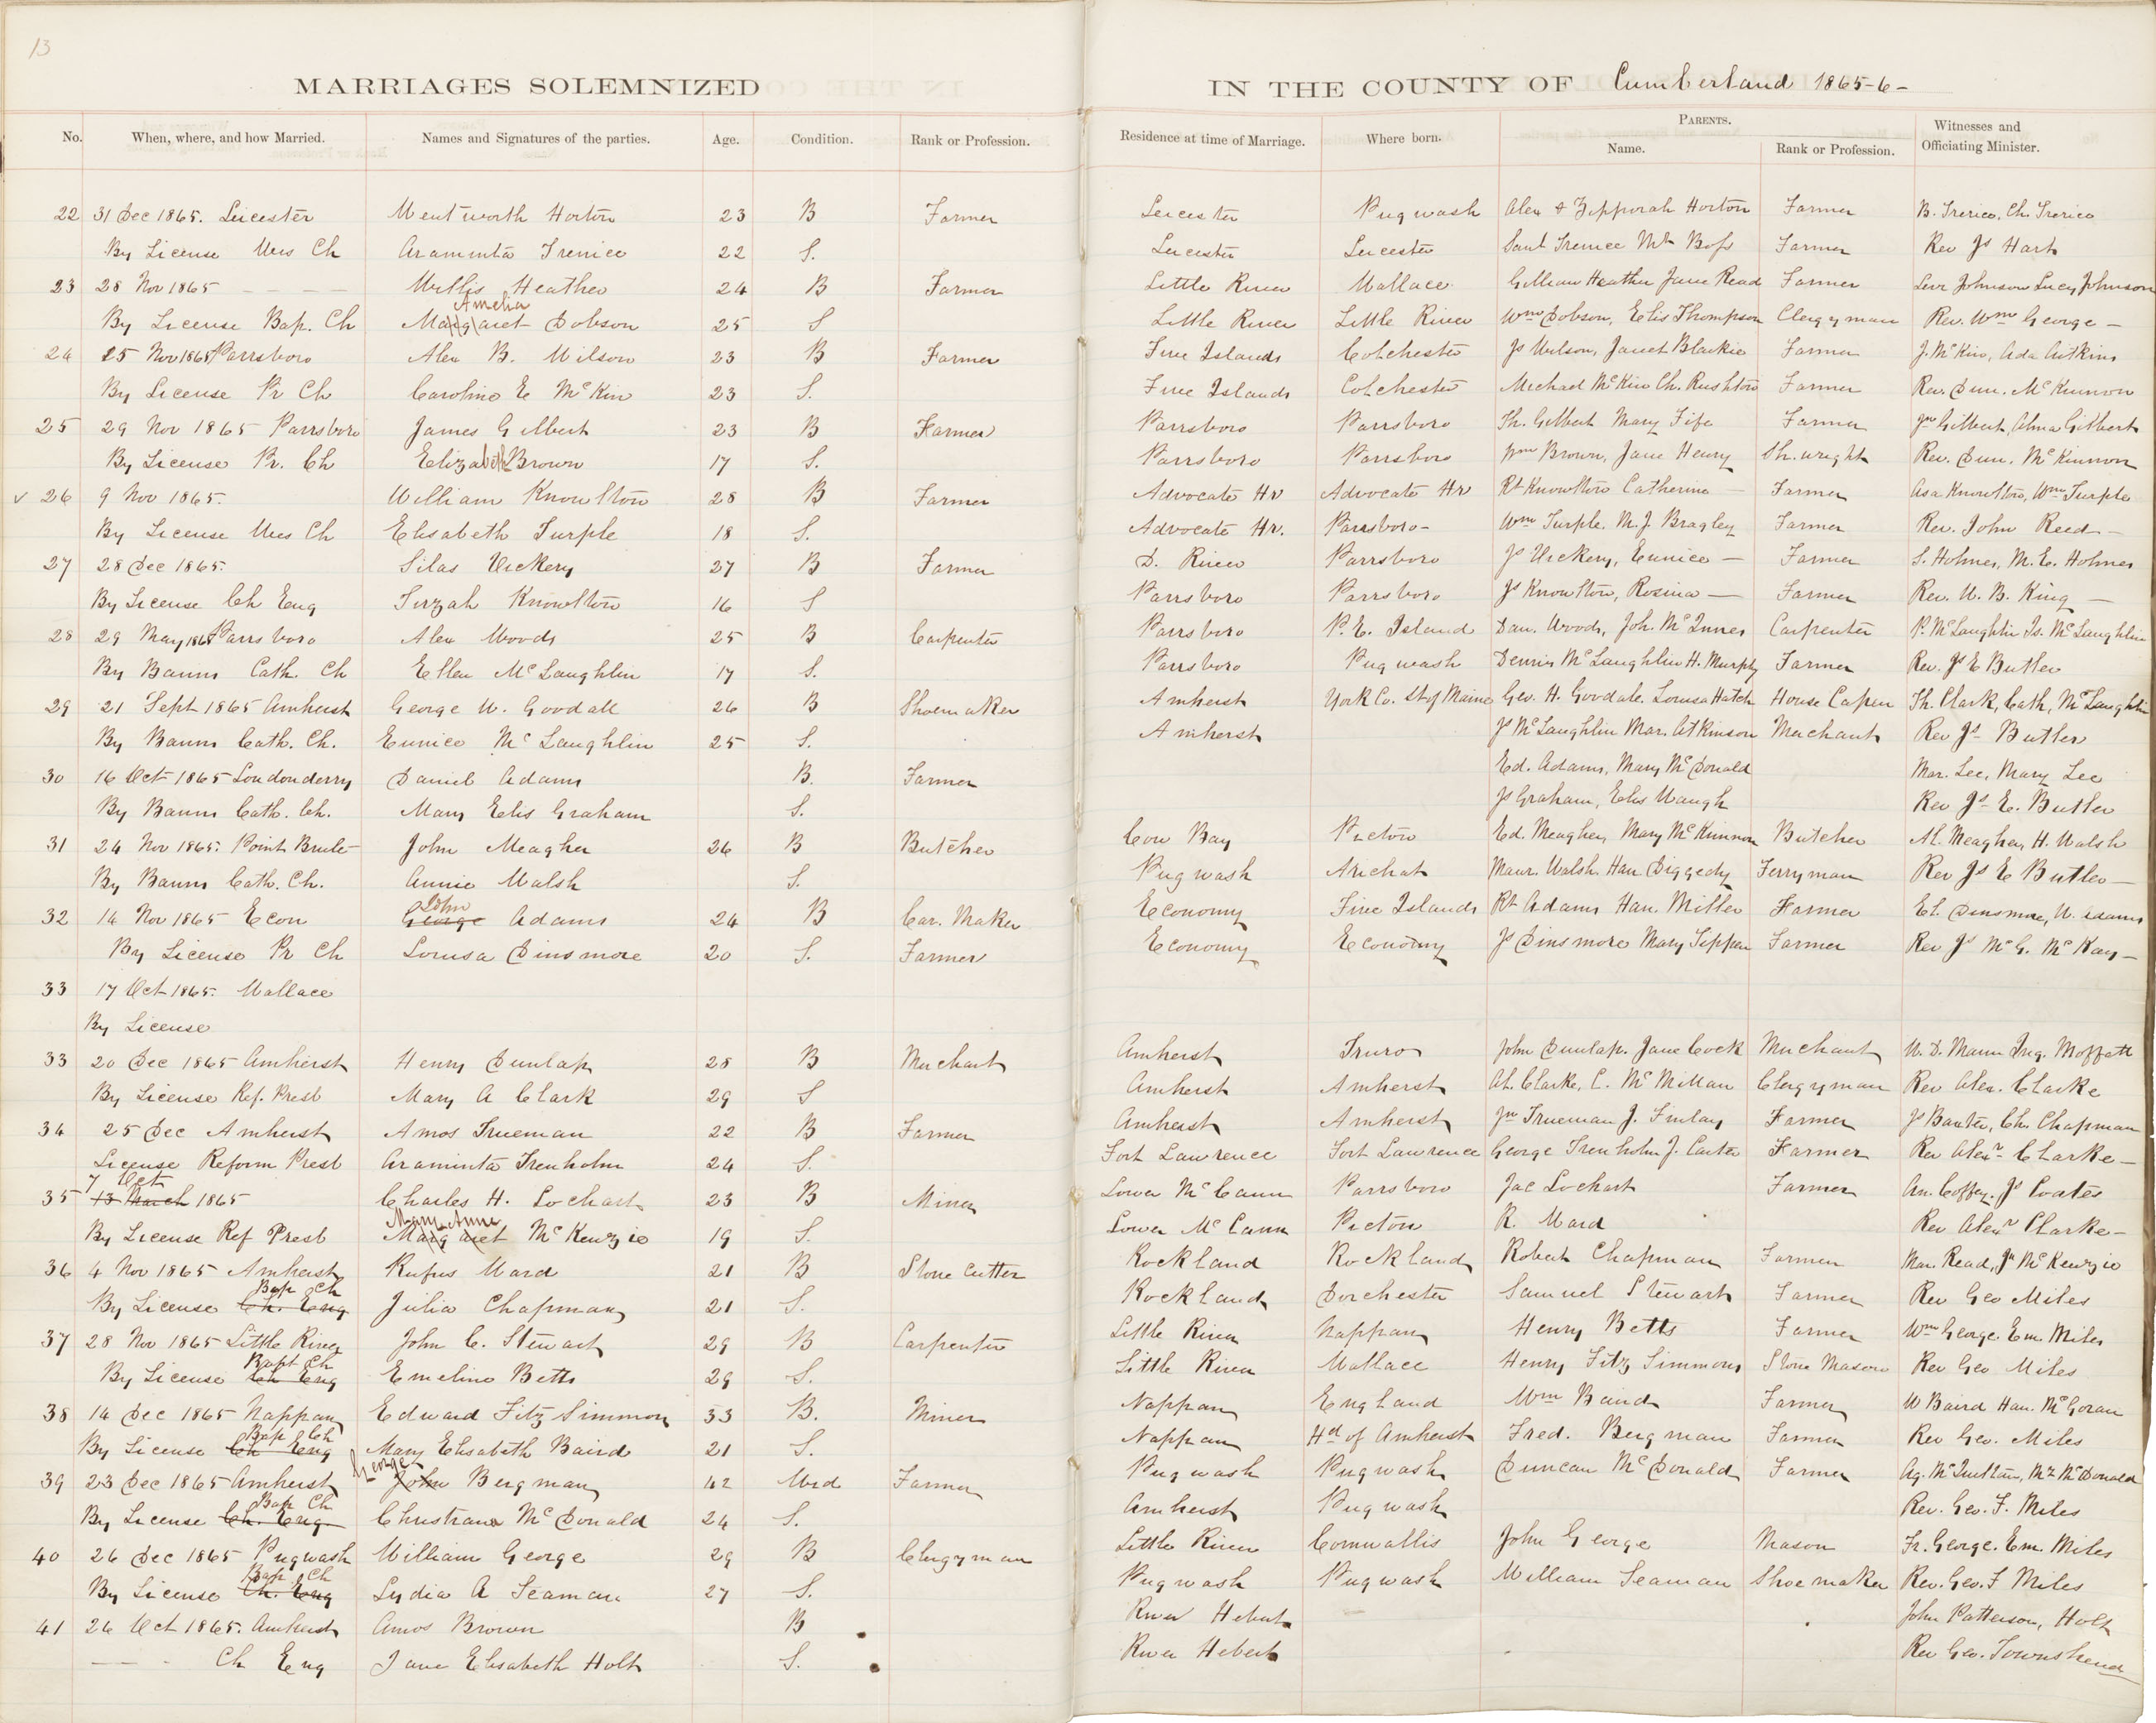 13
MARRIAGES SOLEMNIZED IN THE COUNTY OF Cumberland 1865-6-
No. When, where, and how Married. Names and Signatures of the parties. Age. Condition. Rank or Profession. Residence at time of Marriage. Where born. PARENTS. Name. Rank or Profession. Witnesses and Officiating Minister.
22 31 Dec 1865. Leicester Wentworth Horton 23 B Farmer Leicester Pugwash Alex & Zipporah Horton Farmer B. Trerice, Ch. Trerice
By License Wes Ch Araminta Trenice 22 S. Leicester Leicester Farmer Rev Js Hart
23 28 Nov 1865 Willis Heather 24 B Farmer Little River Wallace Gilliam Heather Jane Read Farmer Levi Johnson Lucy Johnson
By License Bap. Ch Margaret Amelia Dobson 25 S Little River Little River Wm Dobson, Elis Thompson Clergyman Rev. Wm George -
24 25 Nov 1865 Parrsboro Alex B. Wilson 23 B Farmer Five Islands Colchester Js Wilson, Janet Blackie Farmer J. McKim, Ada Aitkins
By License Pr Ch Caroline E McKim 23 S. Five Islands Colchester Michael McKim Ch. Rushton Farmer Rev. Dun. McKinnon
25 29 Nov 1865 Parrsboro James Gilbert 23 B Farmer Parrsboro Parrsboro Th. Gilbert Mary Fife Farmer Jno Gilbert, Alma Gilbert
By License Pr. Ch Elizabeth Brown 17 S. Parrsboro Parrsboro Wm Brown, Jane Henry Sh. wright Rev. Dun. McKinnon
26 9 Nov 1865. William Knowlton 28 B Farmer Advocate Hr Advocate Hr Rt Knowlton Catherine — Farmer Asa Knowlton, Wm Turple
By License Wes Ch Elisabeth Turple 18 S. Advocate Hr. Parrsboro- Wm Turple. M. J. Bragley Farmer Rev. John Reed -
27 28 Dec 1865. Silas Vickery 27 B Farmer D. River Parrsboro Js Vickery, Eunice — Farmer S. Holmes, M. E. Holmes
By License Ch Eng Tirzah Knowlton 16 S Parrsboro Parrsboro Js Knowlton, Rosina — Farmer Rev. W. B. King —
28 29 May 1865 Parrsboro Alex Woods 25 B Carpenter Parrsboro P. E. Island Dan. Woods, Joh. McInnes Carpenter P. McLaughlin Is. McLaughlin
By Banns Cath. Ch Ellen McLaughlin 17 S. Parrsboro Pugwash Dennis McLaughlin H. Murphy Farmer Rev. Js E Butler
29 21 Sept 1865 Amherst George W. Goodall 26 B Shoemaker Amherst York Co. St of Maine Geo. H. Goodale. Louisa Hatch House Carpen Th. Clark, Cath. McLaughlin
By Banns Cath. Ch. Eunice McLaughlin 25 S. Amherst Js McLaughlin Mar. Atkinson Merchant Rev Js Butler
30 16 Oct 1865 Londonderry Daniel Adams B. Farmer Ed. Adams, Mary McDonald Mar. Lee, Mary Lee
By Banns Cath. Ch. Mary Elis Graham S. Js Graham, Elis Waugh Rev Js E. Butler
31 24 Nov 1865. Point Brule John Meagher 26 B Butcher Cow Bay Pictou Ed. Meagher, Mary McKinnon Butcher Al. Meagher, H. Walsh
By Banns Cath. Ch. Annie Walsh S. Pugwash Arichat Maur. Walsh. Han Diggedy Ferryman Rev Js E Butler —
32 14 Nov 1865 Econ George John Adams 24 B Car. Maker Economy Five Islands Rt Adams Han. Miller Farmer El. Dinsmore, W. Adams
By License Pr Ch Louisa Dinsmore 20 S. Farmer Economy Economy Js Dinsmore Mary Tippen Farmer Rev Js McG. McKay —
33 17 Oct 1865. Wallace
By License
33 20 Dec 1865 Amherst Henry Dunlap 28 B Merchant Amherst Truro John Dunlap. Jane Cock Merchant W. D. Mann Ing. Moffatt
By License Ref. Presb Mary A Clark 29 S Amherst Amherst Al. Clarke, C. McMillan Clergyman Rev Alex. Clarke
34 25 Dec Amherst Amos Trueman 22 B Farmer Amherst Amherst Jn Trueman J. Finlay Farmer Js Baxter, Ch. Chapman
License Reform Presb Araminta Trenholm 24 S. Fort Lawrence Fort Lawrence George Trenholm J. Carter Farmer Rev Alexr Clarke —
35 13 March 7 Oct 1865 Charles H. Lochart 23 B Miner Lower McCann Parrsboro Jac Lochart Farmer An. Coffey. Js Coates
By License Ref Presb Margaret Mary Anne McKenzie 19 S. Lower McCann Pictou R. Ward Rev Alexr Clarke —
36 4 Nov 1865 Amherst Rufus Ward 21 B Stone Cutter Rockland Rockland Robert Chapman Farmer Mar. Read, Jn McKenzie
By License Ch. Eng Bap Ch Julia Chapman 21 S. Rockland Dorchester Samuel Stewart Farmer Rev Geo Miles
37 28 Nov 1865 Little River John C. Stewart 29 B Carpenter Little River Nappan Henry Betts Farmer Wm George. Em. Miles
By License Ch Eng Bapt Ch Emeline Betts 29 S. Little River Wallace Henry Fitz Simmons Stone Mason Rev Geo Miles
38 14 Dec 1865 Nappan Edward Fitz Simmon 33 B. Miner Nappan England Wm Baird Farmer W Baird Han. McGoran
By License Ch Eng Bap Ch Mary Elisabeth Baird 21 S. Nappan Hd of Amherst Fred. Bergman Farmer Rev Geo. Miles
39 23 Dec 1865 Amherst John George Bergman 42 Wid Farmer Pugwash Pugwash Duncan McDonald Farmer
By License Ch. Eng. Bap Ch Christiana McDonald 24 S. Amherst Pugwash Rev. Geo. F. Miles
40 26 Dec 1865 Pugwash William George 29 B Clergyman Little River Cornwallis John George Mason Fr. George. Em. Miles
By License Ch. Eng Bap Ch Lydia A Seaman 27 S. Pugwash Pugwash William Seaman Shoemaker Rev. Geo. F Miles
41 26 Oct 1865. Amherst Amos Brown B River Hebert John Patterson, Holt
Ch Eng Jane Elisabeth Holt S. River Hebert Rev Geo. Townshend